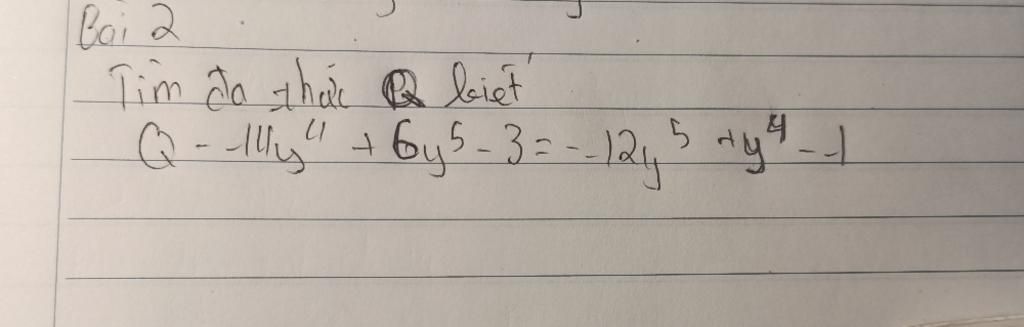 Bài 2
Tìm đa thức Q biết
Q - 14y⁴ + 6y⁵ - 3 = -12y⁵ + y⁴ - 1